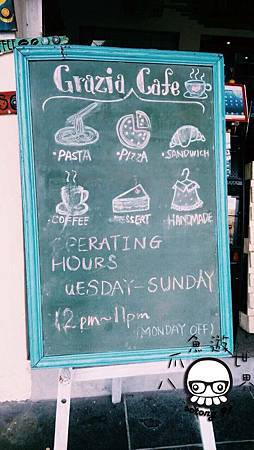 Grazia Cafe
• PASTA • PIZZA • SANDWICH
• COFFEE DESSERT HANDMADE
OPERATING
HOURS
UESDAY-SUNDAY
12pm~11pm
(MONDAY OFF)
魚遊
八爪 世界
botong 91